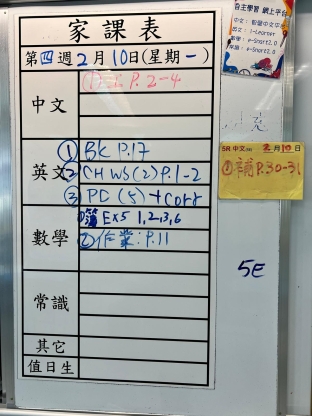 家課表
第四週2月10日(星期一)
中文
P.2-4
英文
① BK P.17
② CH WS(2) P.1-2
③ PD (5) + corr
數學
①簿 Ex5 1,2,3,6
②作業: P.11
常識
其它
值日生
自主學習 網上平台
中文:
英文: i-Learner
數學: e-Smart2.0
常識: e-Smart2.0
5R 中文 2月10日
① P.30-31
5E